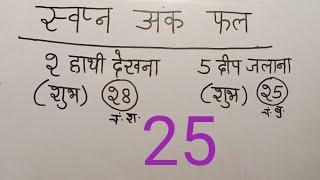 स्वप्न अंक फल
२ हाथी देखना 5 दीप जलाना
(शुभ) २४ (शुभ) २5
25